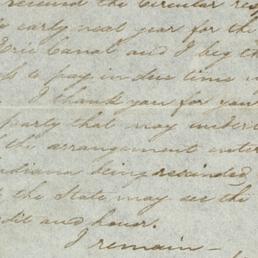 received the Circular res
early next year for the
Erie Canal and I beg th
to pay in due time
I thank you for you
party that may under
the arrangement enter
Indiana being rescinded
the State may see the
dit and honor.
I remain –